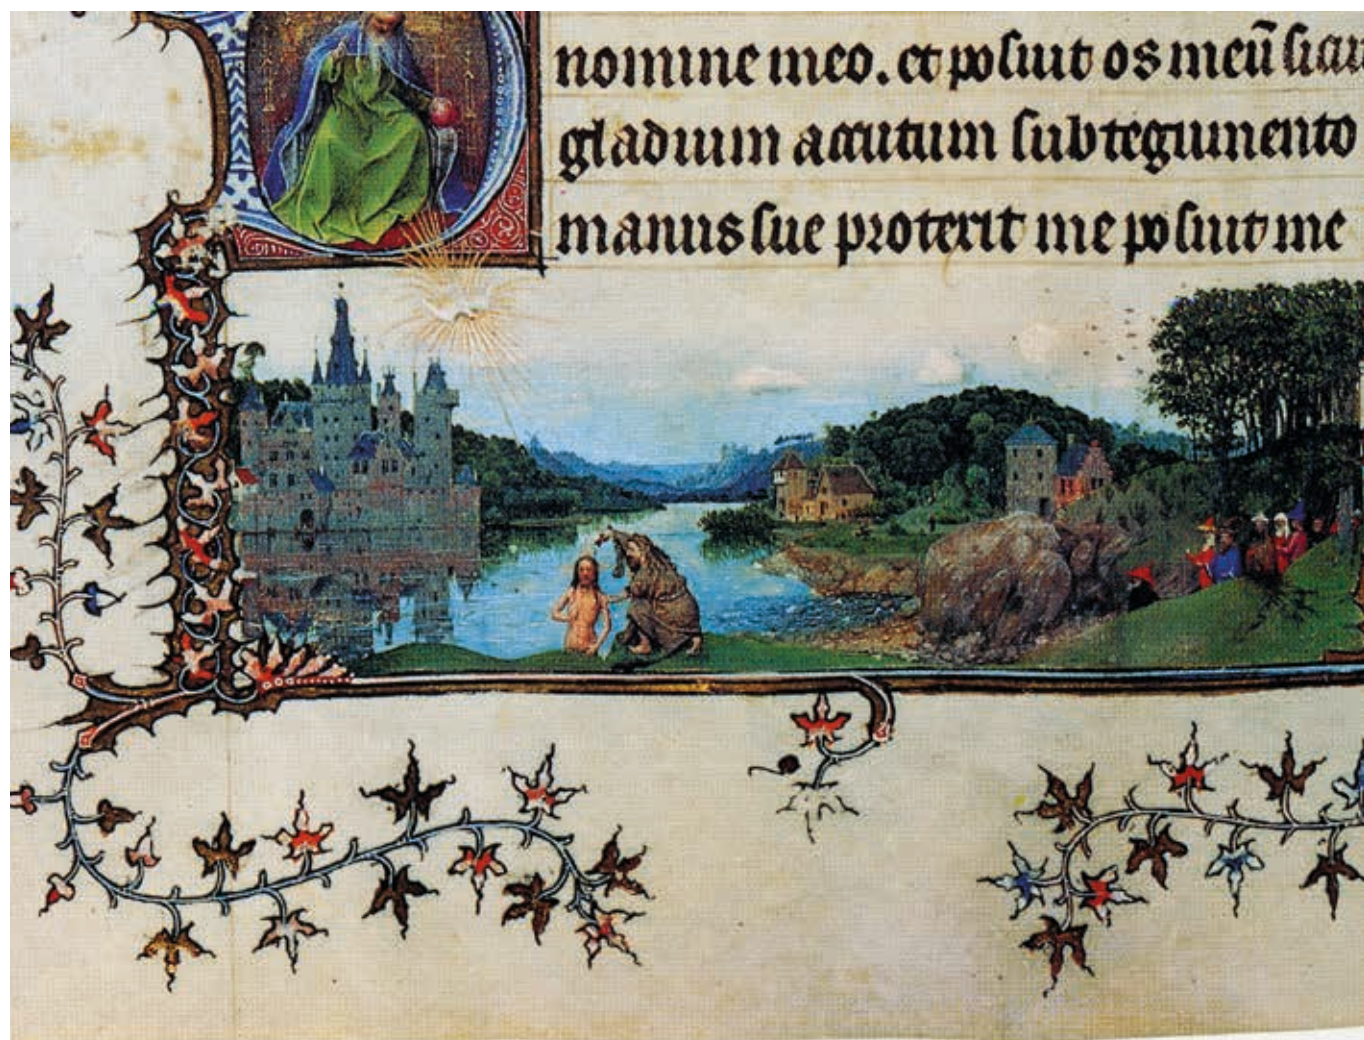 nomine meo. et posuit os meū sicut
gladium accutum sub tegumento
manus sue proterit me posuit me